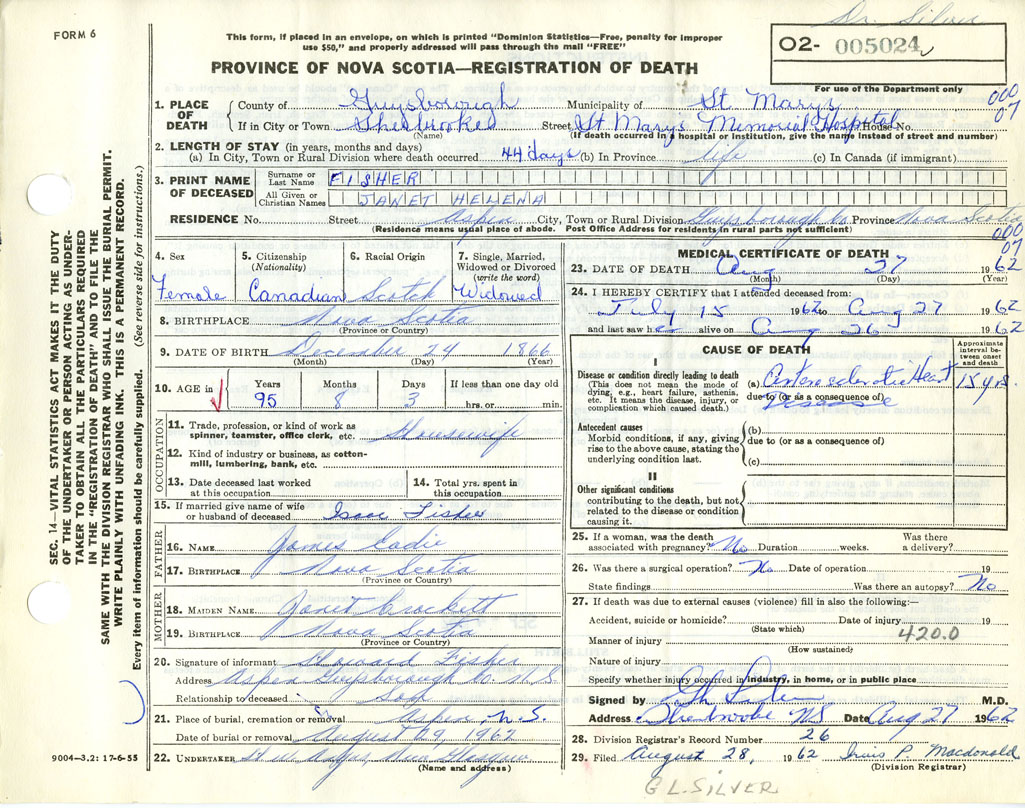 Dr. Silver
FORM 6
This form, if placed in an envelope, on which is printed "Dominion Statistics—Free, penalty for improper
use $50," and properly addressed will pass through the mail "FREE"
O2- 005024
PROVINCE OF NOVA SCOTIA—REGISTRATION OF DEATH
For use of the Department only
000
07
1. PLACE OF DEATH County of Guysborough Municipality of St. Marys
If in City or Town Sherbrooke Street St Mary's Memorial Hospital House No.
(Name) (If death occurred in a hospital or institution, give the name instead of street and number)
2. LENGTH OF STAY (in years, months and days)
(a) In City, Town or Rural Division where death occurred 44 days (b) In Province life (c) In Canada (if immigrant)
3. PRINT NAME OF DECEASED Surname or Last Name FISHER
All Given or Christian Names JANET HELENA
RESIDENCE No. Street Aspen City, Town or Rural Division Guysborough Co. Province Nova Scotia
(Residence means usual place of abode. Post Office Address for residents in rural parts not sufficient)
000
07
4. Sex 5. Citizenship (Nationality) 6. Racial Origin 7. Single, Married, Widowed or Divorced (write the word)
Female Canadian Scotch Widowed
8. BIRTHPLACE Nova Scotia
(Province or Country)
9. DATE OF BIRTH December 24 1866
(Month) (Day) (Year)
10. AGE in Years Months Days If less than one day old
95 8 3 hrs. or min.
OCCUPATION
11. Trade, profession, or kind of work as
spinner, teamster, office clerk, etc. Housewife
12. Kind of industry or business, as cotton-
mill, lumbering, bank, etc.
13. Date deceased last worked
at this occupation
14. Total yrs. spent in
this occupation
15. If married give name of wife
or husband of deceased Isaac Fisher
FATHER
16. NAME James Eadie
17. BIRTHPLACE Nova Scotia
(Province or Country)
MOTHER
18. MAIDEN NAME Janet Crockett
19. BIRTHPLACE Nova Scotia
(Province or Country)
20. Signature of informant Howard Fisher
Address Aspen Guysborough Co. N.S.
Relationship to deceased Son
21. Place of burial, cremation or removal Aspen, N.S.
Date of burial or removal August 29, 1962
22. UNDERTAKER New Glasgow
(Name and address)
MEDICAL CERTIFICATE OF DEATH
23. DATE OF DEATH Aug 27 1962
(Month) (Day) (Year)
24. I HEREBY CERTIFY that I attended deceased from:
July 15 1962 to Aug 27 1962
and last saw her alive on Aug 26 1962
CAUSE OF DEATH
Approximate interval between onset and death
I
Disease or condition directly leading to death
(This does not mean the mode of
dying, e.g., heart failure, asthenia,
etc. It means the disease, injury, or
complication which caused death.)
(a) Arteriosclerotic Heart Disease 15 yrs.
due to (or as a consequence of)
Antecedent causes
Morbid conditions, if any, giving
rise to the above cause, stating the
underlying condition last.
(b)
due to (or as a consequence of)
(c)
II
Other significant conditions
contributing to the death, but not
related to the disease or condition
causing it.
25. If a woman, was the death
associated with pregnancy? No Duration weeks. Was there a delivery?
26. Was there a surgical operation? No Date of operation 19
State findings Was there an autopsy? No
27. If death was due to external causes (violence) fill in also the following:—
Accident, suicide or homicide? Date of injury 19
(State which)
420.0
Manner of injury
(How sustained)
Nature of injury
Specify whether injury occurred in industry, in home, or in public place
Signed by M.D.
Address Sherbrooke NS Date Aug 27 1962
28. Division Registrar's Record Number 26
29. Filed August 28, 1962 P. Macdonald
(Division Registrar)
G L. SILVER
9004—3,2: 17-6-55
SEC. 14—VITAL STATISTICS ACT MAKES IT THE DUTY
OF THE UNDERTAKER OR PERSON ACTING AS UNDER-
TAKER TO OBTAIN ALL THE PARTICULARS REQUIRED
IN THE "REGISTRATION OF DEATH" AND TO FILE THE
SAME WITH THE DIVISION REGISTRAR WHO SHALL ISSUE THE BURIAL PERMIT.
WRITE PLAINLY WITH UNFADING INK. THIS IS A PERMANENT RECORD.
Every item of information should be carefully supplied. (See reverse side for instructions.)